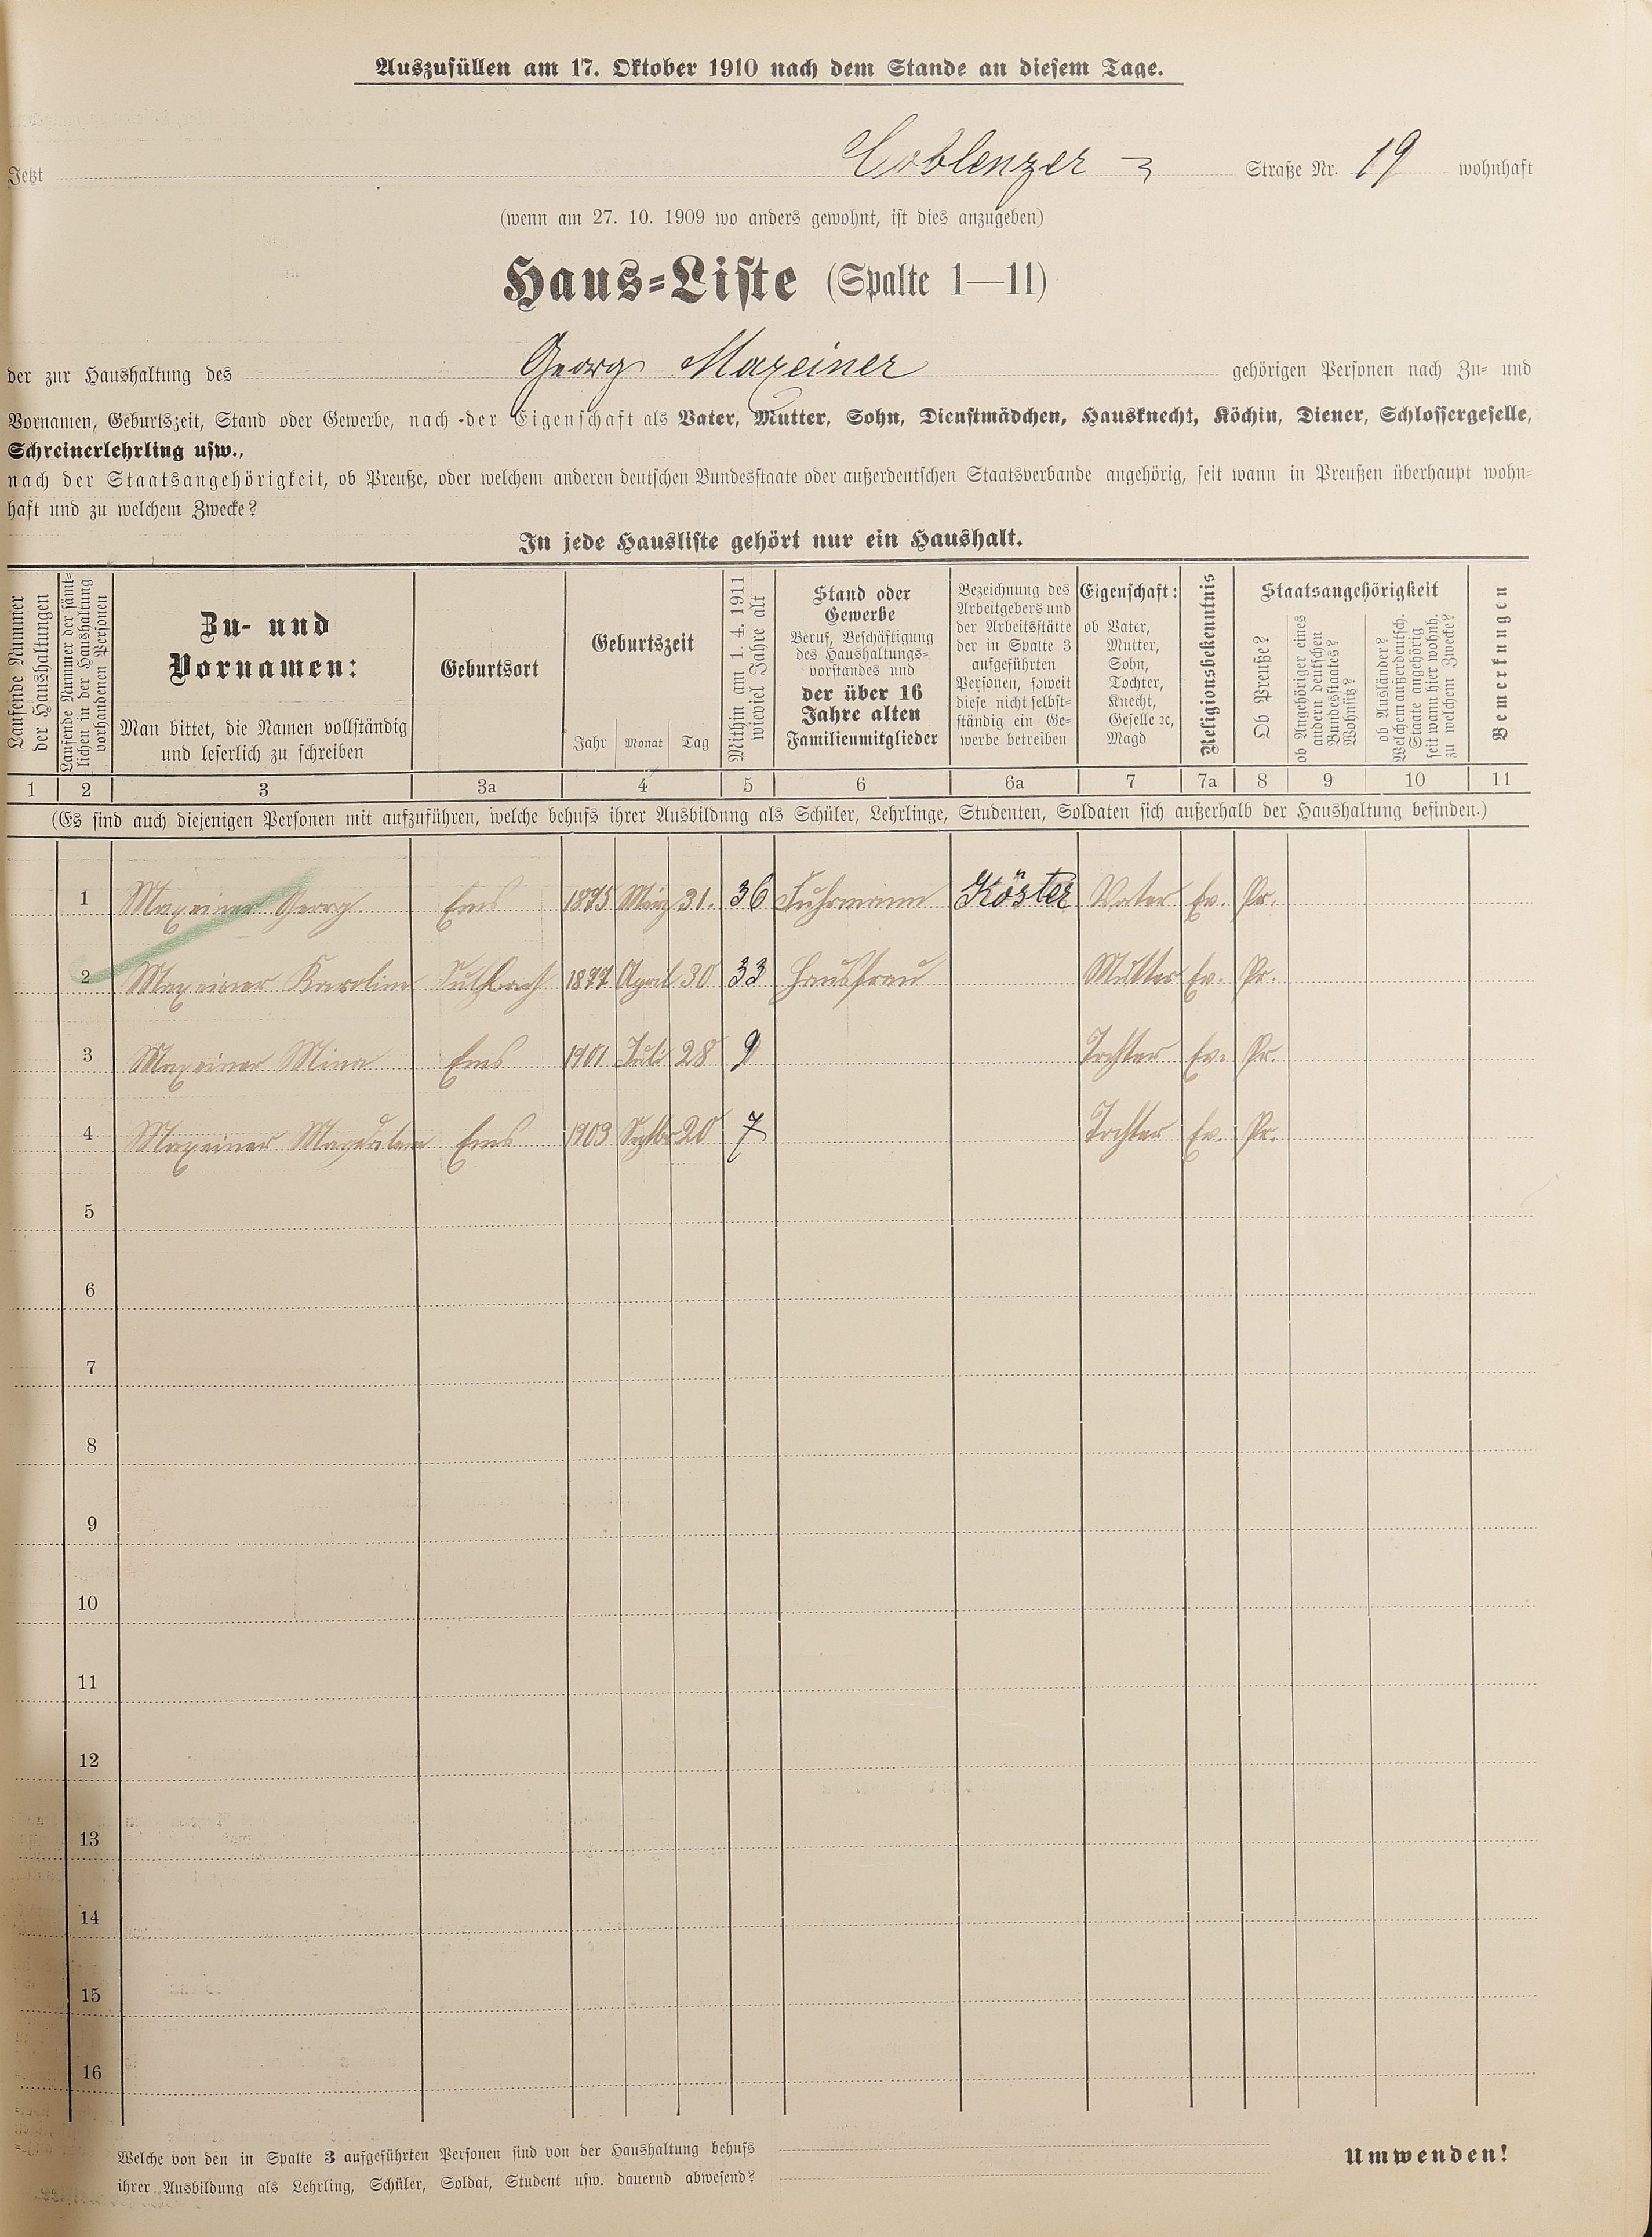 Auszufüllen am 17. Oktober 1910 nach dem Stande an diesem Tage.
Jetzt Coblenzer - Straße Nr. 19 wohnhaft
(wenn am 27. 10. 1909 wo anders gewohnt, ist dies anzugeben)
Haus=Liste (Spalte 1—11)
der zur Haushaltung des Georg Maxeiner gehörigen Personen nach Zu= und
Vornamen, Geburtszeit, Stand oder Gewerbe, nach der Eigenschaft als Vater, Mutter, Sohn, Dienstmädchen, Hausknecht, Köchin, Diener, Schlossergeselle,
Schreinerlehrling usw.,
nach der Staatsangehörigkeit, ob Preuße, oder welchem anderen deutschen Bundesstaate oder außerdeutschen Staatsverbande angehörig, seit wann in Preußen überhaupt wohn=
haft und zu welchem Zwecke?
In jede Hausliste gehört nur ein Haushalt.
Laufende Nummer
der Haushaltungen
Laufende Nummer der sämt=
lichen in der Haushaltung
vorhandenen Personen
Zu- und
Vornamen:
Man bittet, die Namen vollständig
und leserlich zu schreiben
Geburtsort
Geburtszeit
Jahr Monat Tag
Mithin am 1. 4. 1911
wieviel Jahre alt
Stand oder
Gewerbe
Beruf, Beschäftigung
des Haushaltungs=
vorstandes und
der über 16
Jahre alten
Familienmitglieder
Bezeichnung des
Arbeitgebers und
der Arbeitsstätte
der in Spalte 3
aufgeführten
Personen, soweit
diese nicht selbst=
ständig ein Ge=
werbe betreiben
Eigenschaft:
ob Vater,
Mutter,
Sohn,
Tochter,
Knecht,
Geselle ꝛc,
Magd
Religionsbekenntnis
Staatsangehörigkeit
Ob Preuße?
ob Angehöriger eines
andern deutschen
Bundesstaates?
Wohnsitz?
ob Ausländer?
Welchem außerdeutsch.
Staate angehörig
seit wann hier wohnh.
zu welchem Zwecke?
Bemerkungen
1 2 3 3a 4 5 6 6a 7 7a 8 9 10 11
(Es sind auch diejenigen Personen mit aufzuführen, welche behufs ihrer Ausbildung als Schüler, Lehrlinge, Studenten, Soldaten sich außerhalb der Haushaltung befinden.)
1 Maxeiner Georg. Ems 1875 März 31. 36 Fuhrmann Köster Vater Ev. Pr.
2 Maxeiner Karoline 1877 April 30 33 Hausfrau Mutter Ev. Pr.
3 Maxeiner Mina Ems 1901 Juli 28 9 Tochter Ev. Pr.
4 Maxeiner Magdalene Ems 1903 Septbr 20 7 Tochter Ev. Pr.
5
6
7
8
9
10
11
12
13
14
15
16
Welche von den in Spalte 3 aufgeführten Personen sind von der Haushaltung behufs
ihrer Ausbildung als Lehrling, Schüler, Soldat, Student usw. dauernd abwesend?
Umwenden!